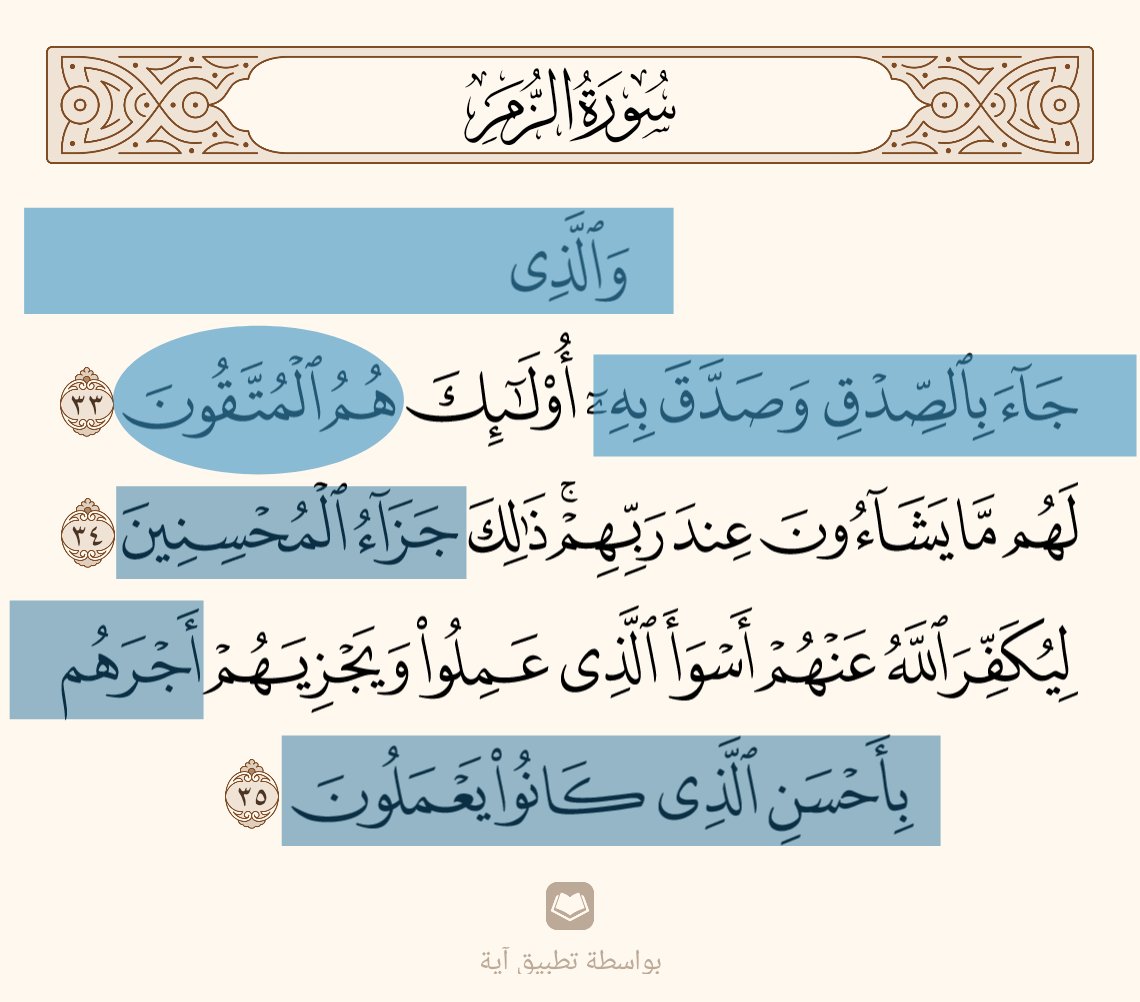 سُورَةُ الزُّمَرِ
وَٱلَّذِى
جَآءَ بِٱلصِّدْقِ وَصَدَّقَ بِهِۦٓ أُو۟لَـٰٓئِكَ هُمُ ٱلْمُتَّقُونَ ٣٣
لَهُم مَّا يَشَآءُونَ عِندَ رَبِّهِمْ ۚ ذَٰلِكَ جَزَآءُ ٱلْمُحْسِنِينَ ٣٤
لِيُكَفِّرَ ٱللَّهُ عَنْهُمْ أَسْوَأَ ٱلَّذِى عَمِلُوا۟ وَيَجْزِيَهُمْ أَجْرَهُم
بِأَحْسَنِ ٱلَّذِى كَانُوا۟ يَعْمَلُونَ ٣٥
بواسطة تطبيق آية